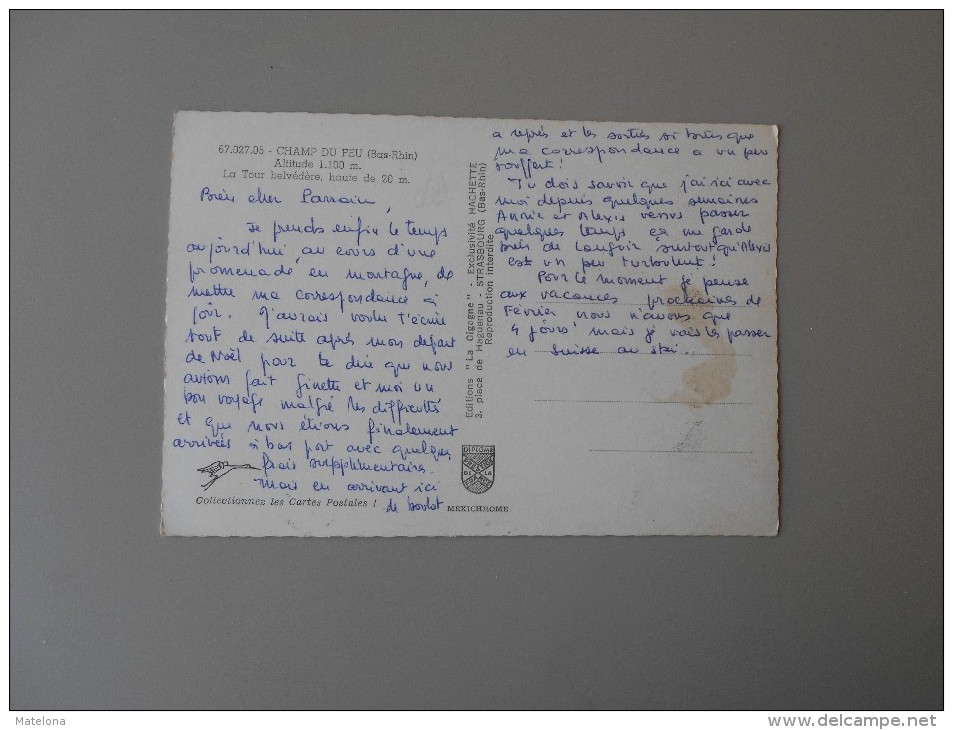 67.027.05 - CHAMP DU FEU (Bas-Rhin)
Altitude 1.100 m.
La Tour belvédère, haute de 20 m.
Bien cher Parrain,
Je prends enfin le temps
aujourd'hui, au cours d'une
promenade en montagne, de
mettre ma correspondance à
jour. J'aurais voulu t'écrire
tout de suite après mon départ
de Noël pour te dire que nous
avions fait Ginette et moi un
bon voyage malgré les difficultés
et que nous étions finalement
arrivées à bas port avec quelques
frais supplémentaires.
Mais en arrivant ici
de boulot
Collectionnez les Cartes Postales !
Editions "La Cigogne" - Exclusivité HACHETTE
3, place de Haguenau - STRASBOURG (Bas-Rhin)
Reproduction interdite
DIPLOME
PRESTIGE
DE LA
FRANCE
MEXICHROME
a repris et les sorties si bien que
ma correspondance a un peu
souffert !
Tu dois savoir que j'ai ici avec
moi depuis quelques semaines
Annie et Alexis venus passer
quelques temps ça me garde
bien de languir surtout qu'Alexis
est un peu turbulent !
Pour le moment je pense
aux vacances prochaines de
Février nous n'avons que
4 jours mais je vais les passer
en Suisse au ski.
Matelona
delcampe.net